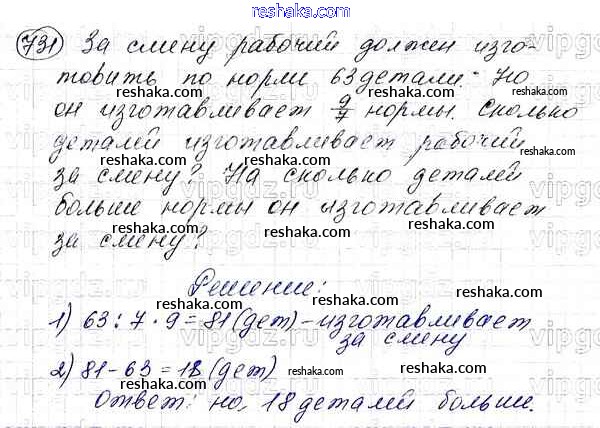 reshaka.com
731 За смену рабочий должен изго-
reshaka.com
товить по норми 63 детали. Но
он изготавливает 9/7 нормы. Сколько
reshaka.com reshaka.com
деталей изготавливает рабочий
reshaka.com reshaka.com
за смену? На сколько деталей
reshaka.com
больше нормы он изготавливает
reshaka.com reshaka.com
за смену?
reshaka.com
Решение:
reshaka.com
1) 63 : 7 · 9 = 81 (дет) – изготавливает
reshaka.com
за смену
reshaka.com
2) 81 - 63 = 18 (дет) reshaka.com
reshaka.com
Ответ: на 18 деталей больше.
reshaka.com